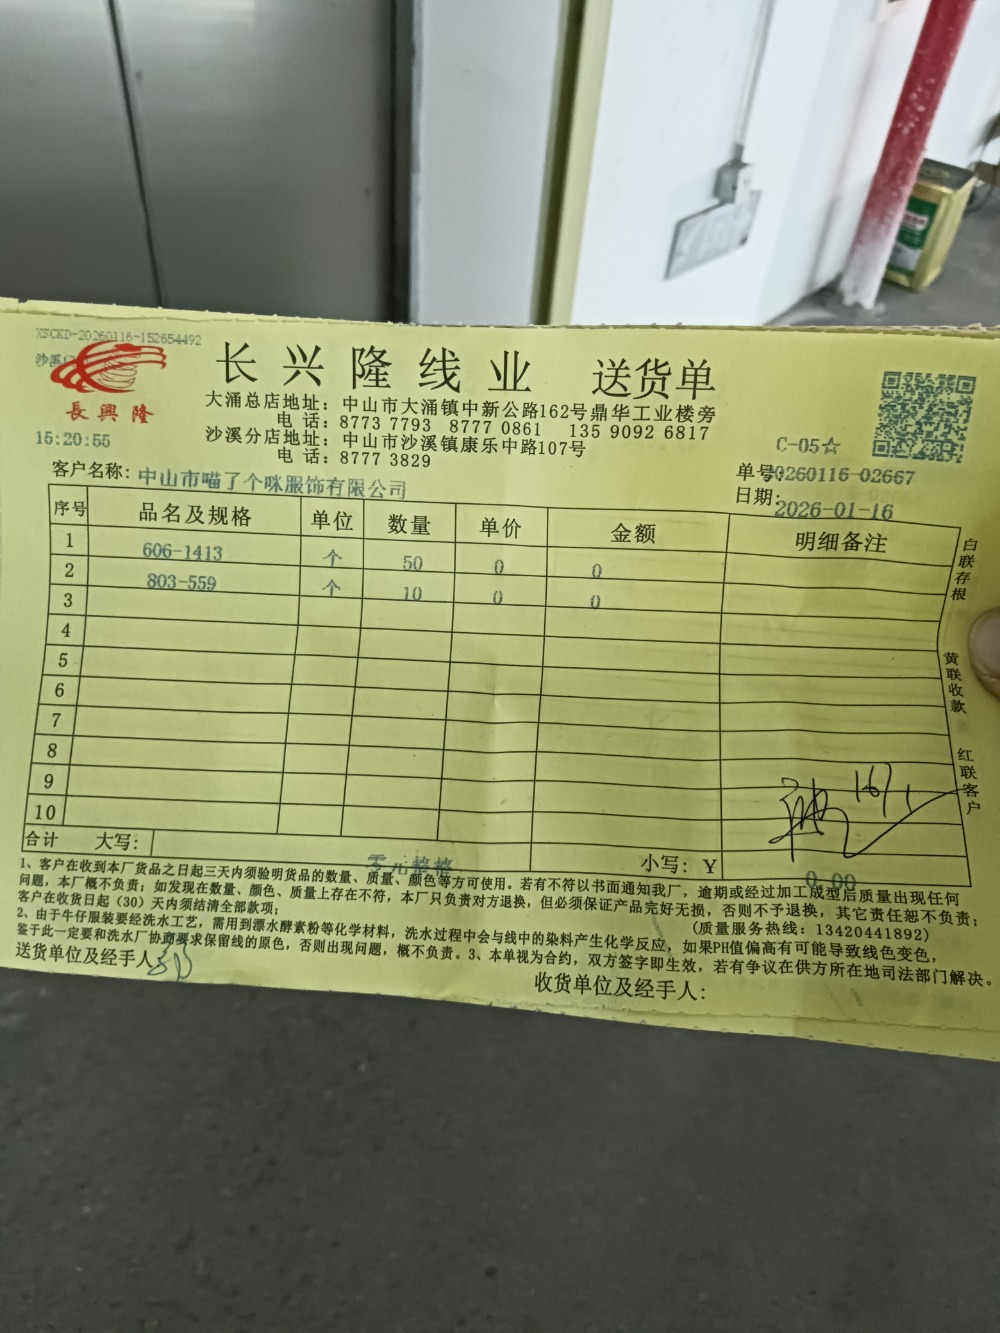 XSCKD-20260116-152654492
沙溪
長興隆
15:20:55
长兴隆线业 送货单
大涌总店地址：中山市大涌镇中新公路162号鼎华工业楼旁
电话：8773 7793 8777 0861 135 9092 6817
沙溪分店地址：中山市沙溪镇康乐中路107号
电话：8777 3829
C-05☆
单号：20260116-02667
日期：2026-01-16
客户名称：中山市喵了个咪服饰有限公司
序号 品名及规格 单位 数量 单价 金额 明细备注
1 606-1413 个 50 0 0
2 803-559 个 10 0 0
3
4
5
6
7
8
9
10
16/1
合计 大写：零元整整 小写：Y 0.00
白联存根
黄联收款
红联客户
1、客户在收到本厂货品之日起三天内须验明货品的数量、质量、颜色等方可使用。若有不符以书面通知我厂，逾期或经过加工成型后质量出现任何
问题，本厂概不负责；如发现在数量、颜色、质量上存在不符，本厂只负责对方退换，但必须保证产品完好无损，否则不予退换，其它责任恕不负责；
客户在收货日起（30）天内须结清全部款项；
(质量服务热线：13420441892)
2、由于牛仔服装要经洗水工艺，需用到漂水酵素粉等化学材料，洗水过程中会与线中的染料产生化学反应，如果PH值偏高有可能导致线色变色，
鉴于此一定要和洗水厂协商要求保留线的原色，否则出现问题，概不负责。3、本单视为合约，双方签字即生效，若有争议在供方所在地司法部门解决。
送货单位及经手人：
收货单位及经手人：